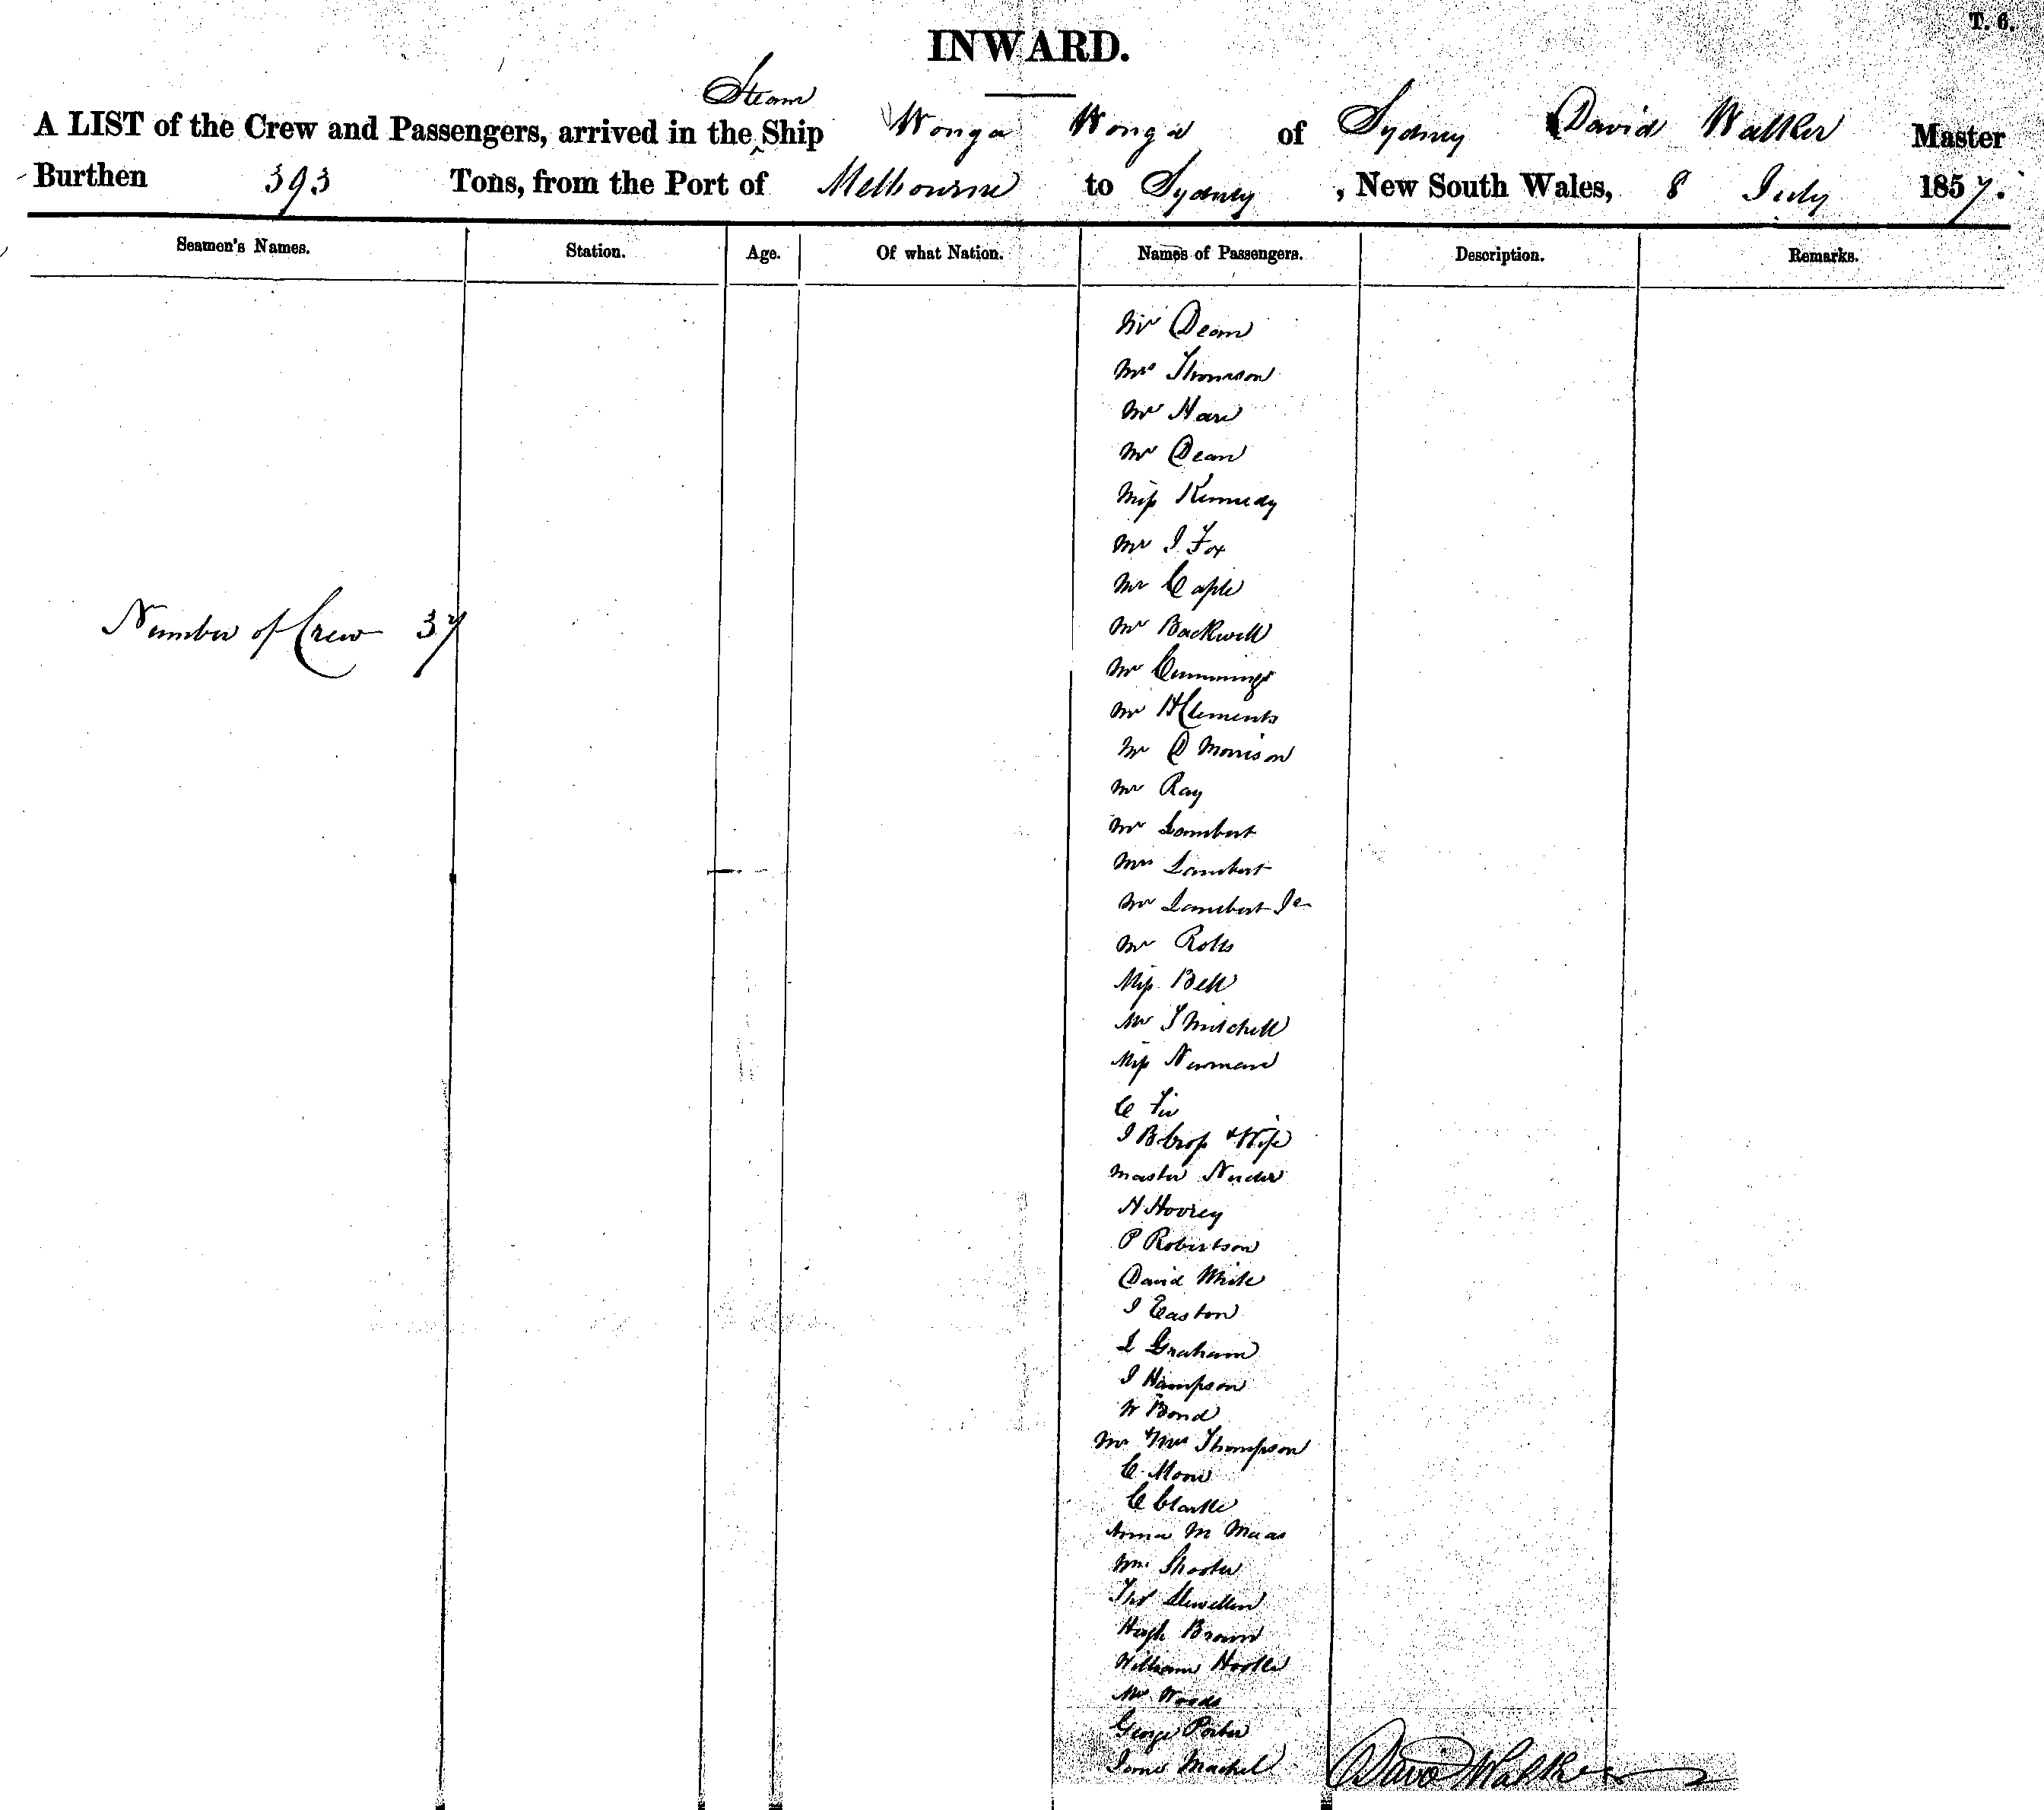 T. 6.
INWARD.
Steam
A LIST of the Crew and Passengers, arrived in the ^ Ship Wonga Wonga of Sydney David Walker Master
Burthen 393 Tons, from the Port of Melbourne to Sydney, New South Wales, 8 July 1857.
Seamen's Names. Station. Age. Of what Nation. Names of Passengers. Description. Remarks.
Mr Dean
Mrs Thomson
Mr Hare
Mr Dean
Miss Kennedy
Mr I Fox
Mr Caple
Number of Crew 37
Mr Backwell
Mr Cummings
Mr H Clements
Mr D Morrison
Mr Ray
Mr Lambert
Mrs Lambert
Mr Lambert Jr
Mr Rolls
Miss Bell
Mr T Mitchell
Miss Newman
C
I B Cross & Wife
Master
H Hovrey
P Robertson
David White
I Easton
L Graham
I Hampson
W Bond
Mr & Mrs Thompson
C Moore
C Clarke
Anna M Maas
Wm Shooter
Thos Llewellen
Hugh Brown
William Hooke
Mr Woods
George Porter
James Machel
David Walker